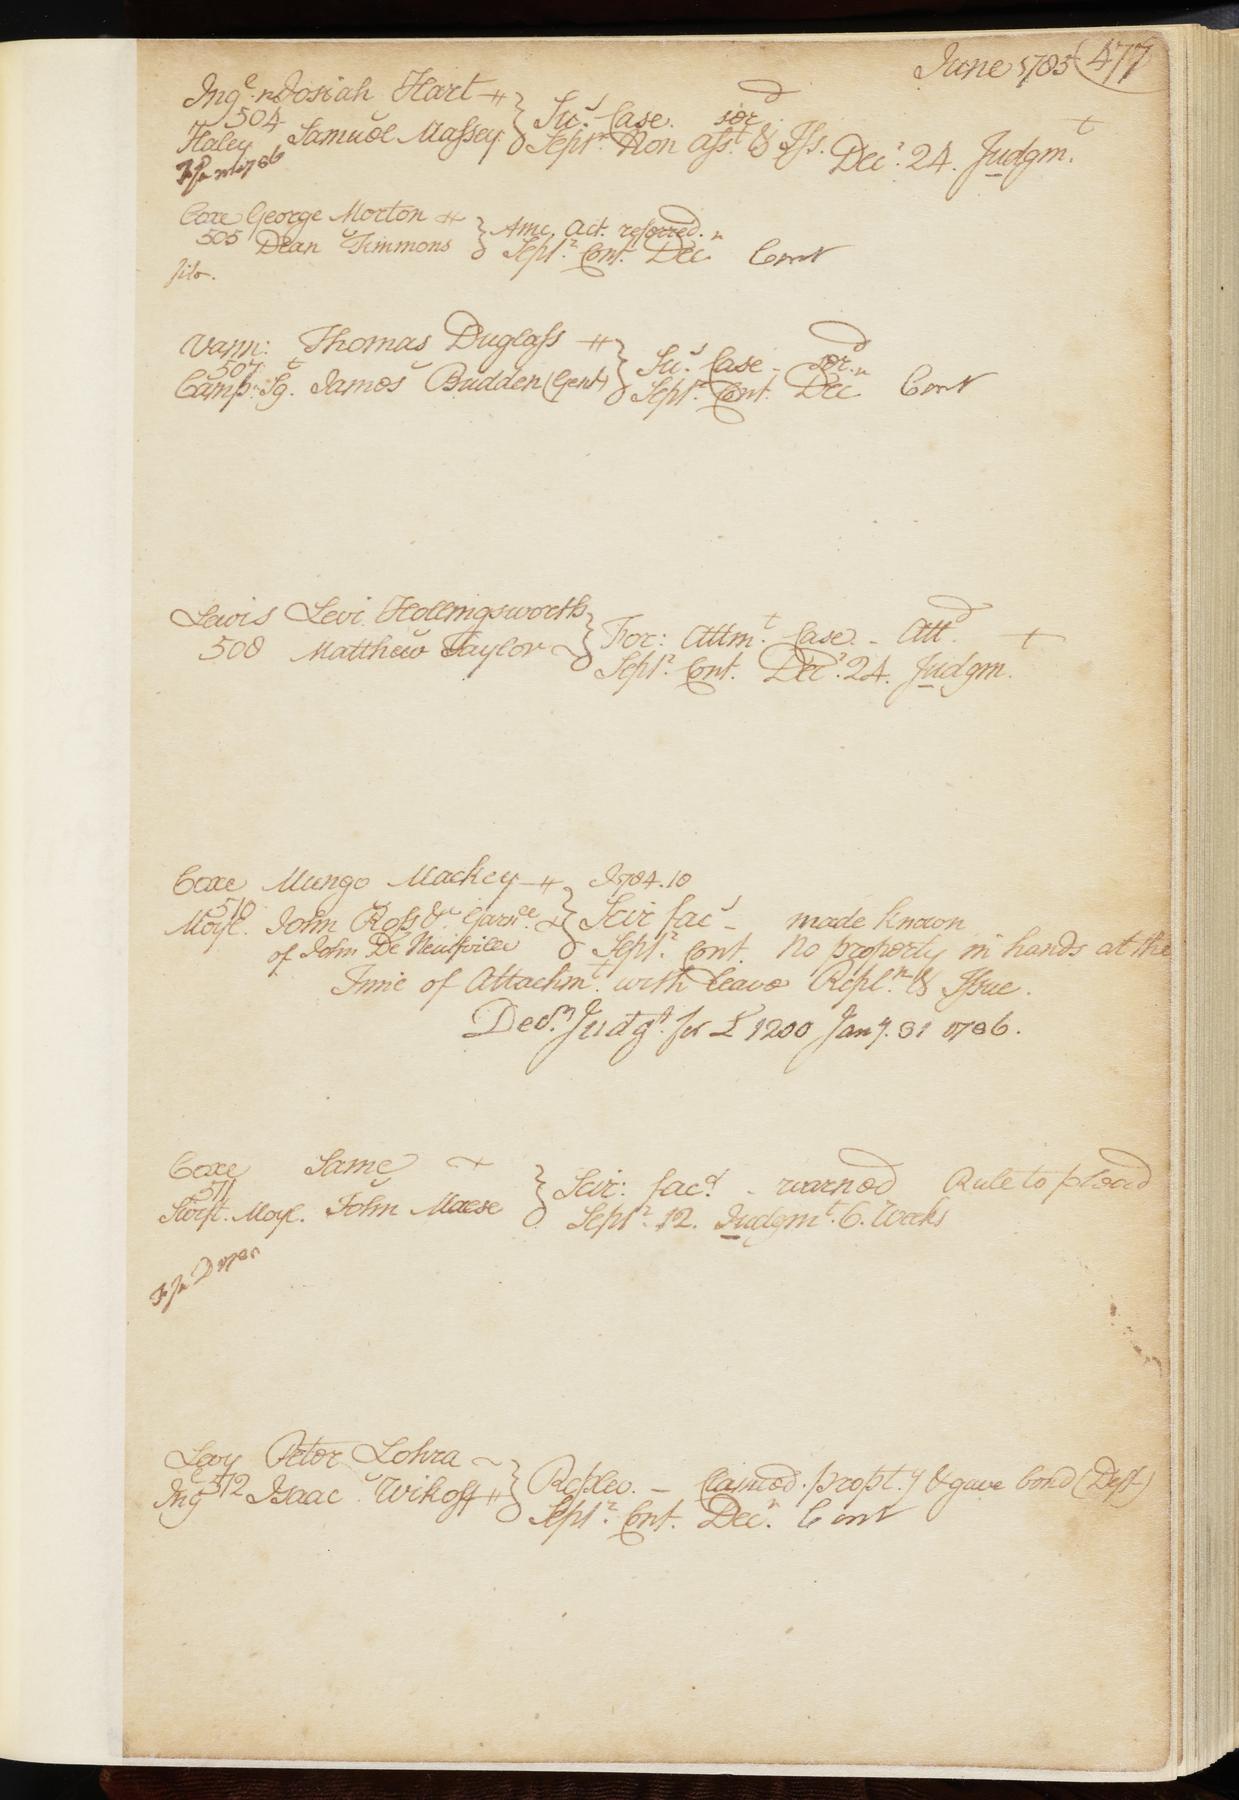 June 1785 477
Ing.e Josiah Hart
504
Su.s Case. ser.d
Haley Samuel Massey
Sept.r Non ass.t & Iss. Dec.r 24. Judgm.t
Coxe George Morton
505 Dean Timmons
Amc. Act. referred.
Sept.r Cont. Dec.r Cont
filo.
Vann: Thomas Duglass
507
Su.s Case - ser.d
Camp: Sg.t James Budden (Gent)
Sept.r Cont. Dec.r Cont
Lewis Levi Hollingsworth
508 Matthew Taylor
For: Attm.t Case - Att.d
Sept.r Cont. Dec.r 24. Judgm.t
Coxe Mungo Mackey J 784.10
510
Moyl. John Ross & Garn.ee
Scir fac.s - made known
of John De Neufville
Sept.r Cont. No property in hands at the
Time of Attachm.t with leave Repl.n & Issue.
Dec.m Judg.t for £ 1200 Jany. 31 1786.
Coxe Same
511
Scir: fac.s - warned Rule to plead
Moyl. John Maese
Sept.r 12. Judgm.t 6. Weeks
Levy Peter Lohra
Ing 512 Isaac Wikoff
Replev. - Claimed propt.y & gave bond (Deft)
Sept.r Cont. Dec.r Cont